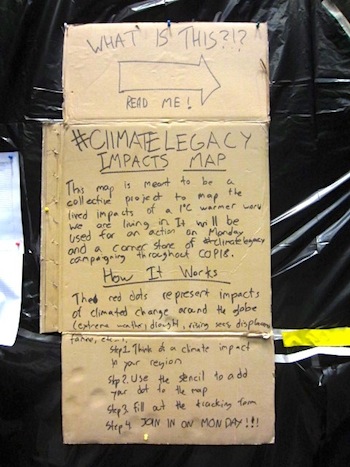 WHAT IS THIS?!?
READ ME!
#CLIMATELEGACY
IMPACTS MAP
This map is meant to be a
collective project to map the
lived impacts of a 1°C warmer world
we are living in. It will be
used for an action on Monday
and a corner stone of #climatelegacy
campaigning throughout COP18.
How It Works
The red dots represent impacts
of climated change around the globe
(extreme weather, drought, rising seas, displacement
famine, etc...)
Step 1. Think of a climate impact
in your region
Step 2. Use the stencil to add
your dot to the map
Step 3. Fill out the tracking form
Step 4. JOIN IN ON MONDAY!!!